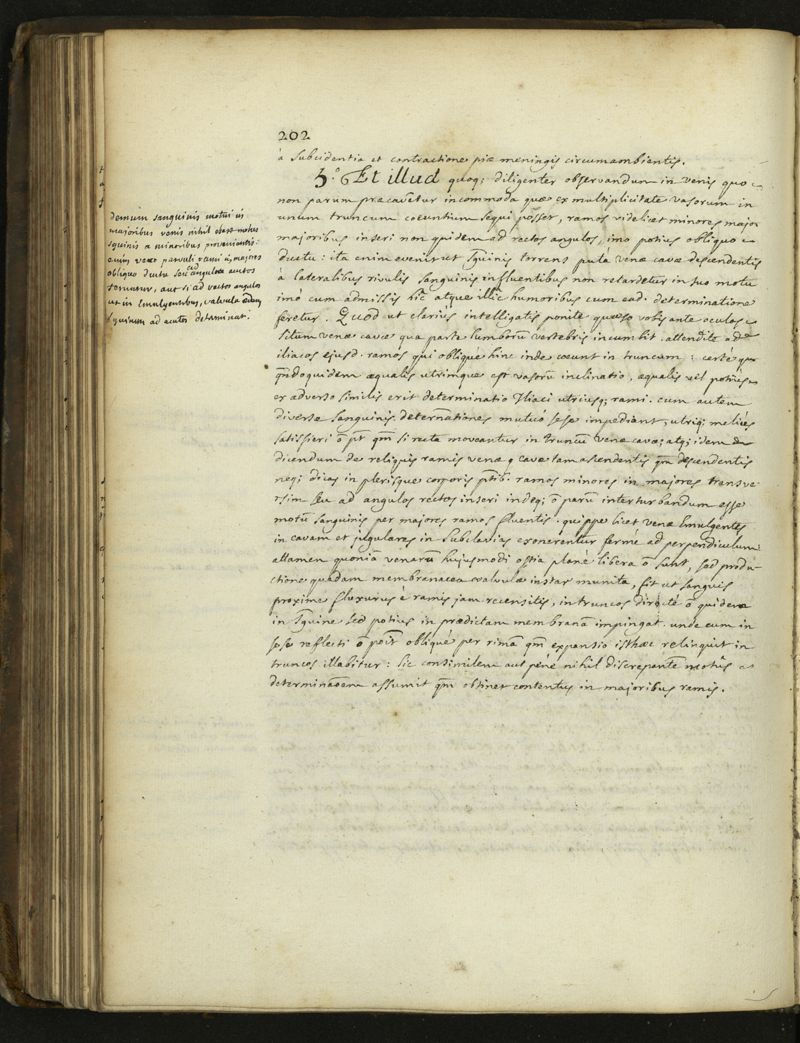 202
à subsidentia et contractione piæ meningis circumambientis.
3.° Et illud quoq; diligenter observandum in venis quo
non parum præcavetur incommoda quæ ex multiplicitate vasorum in
unum truncum coeuntium sequi posset, ramos videlicet minores major
majoribus inseri non quidem ad rectos angulos, imo potius obliquo
ductu: ita enim evenit ut sguinis torrens puta venæ cavæ descendentis
à lateralibus rivulis sanguinis influentibus non retardetur in suo motu
imó cum admissis hîc atque illîc humoribus cum ead. determinatione
feretur. Quod ut clarius intelligatis ponite quæso vobis ante oculos
situm venæ cavæ qua parte lumborū vertebris incumbit. attendite ad
iliacos ejusd. ramos qui obliquè hinc inde coeunt in truncum: certè
qñdoquidem æqualis utrimque est vasorū inclinatio, æqualis vel potius
ex adverso similis erit determinatio Iliaci utriusq; rami. cum autem
diversæ sanguinis determātiones mutuó sese impediant, utriq; meliùs
satisfieri ō pt̄ qm̄ si recta moveantur in truncū venæ cavæ; atq; idem
dicendum de reliquis ramis venæ cavæ tam ascendentis qm̄ descendentis
neq; dicas in plerisque corporis ptib. ramos minores in majores transve-
rsim seu ad angulos rectos inseri indeq; ō parū interturbandum esse
motū sanguinis per majores ramos fluentis. quippe licet venæ Emulgentes
in cavam et jugulares in subclavias exonerentur fermè ad perpendiculum
attamen quoniā venarū hujusmodi ostia planè libera ō sunt, sed produ-
ctione quadam membranacea valvulæ instar munita, fit ut sanguis
proxime fluxurus è ramis jam recensitis, in truncos directè ō quidem
in sguine sed potius in prædictam membranā impingat. unde cum in
sese reflecti ō poss̄it obliquè per rimā qm̄ expansio isthæc relinquit in
truncos illabitur: sic consimilem aut penè nihil discrepantē motûs
determināōem assumit qm̄ obtinet contentus in majoribus ramis.
Demum sanguinis motui in
majoribus venis nihil obest motus
sguinis a minoribus provenientis:
enim venæ parvuli rami in majores
obliquo ductu seu ad angulos acutos
feruntur, aut si ad rectos angulos
ut in Emulgentibus, valvula
sguinem ad acutos determinat.